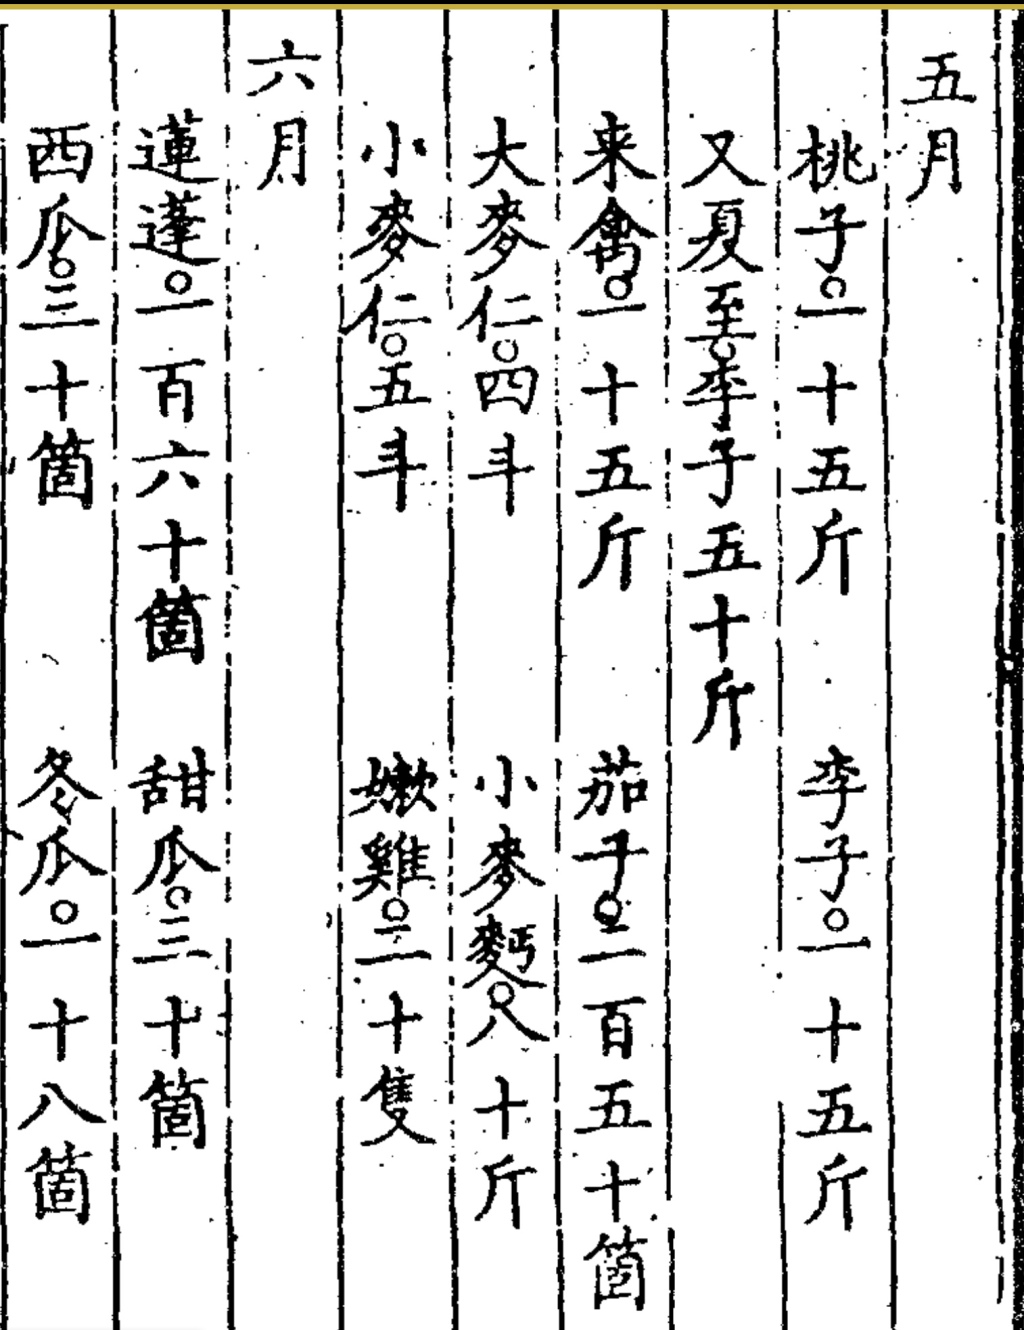 五月
桃子○一十五斤　李子○一十五斤
又夏至○李子五十斤
来禽○一十五斤　茄子○二百五十箇
大麥仁○四斗　小麥麪○八十斤
小麥仁○五斗　嫩雞○二十隻
六月
蓮蓬○一百六十箇　甜瓜○三十箇
西瓜○三十箇　冬瓜○一十八箇